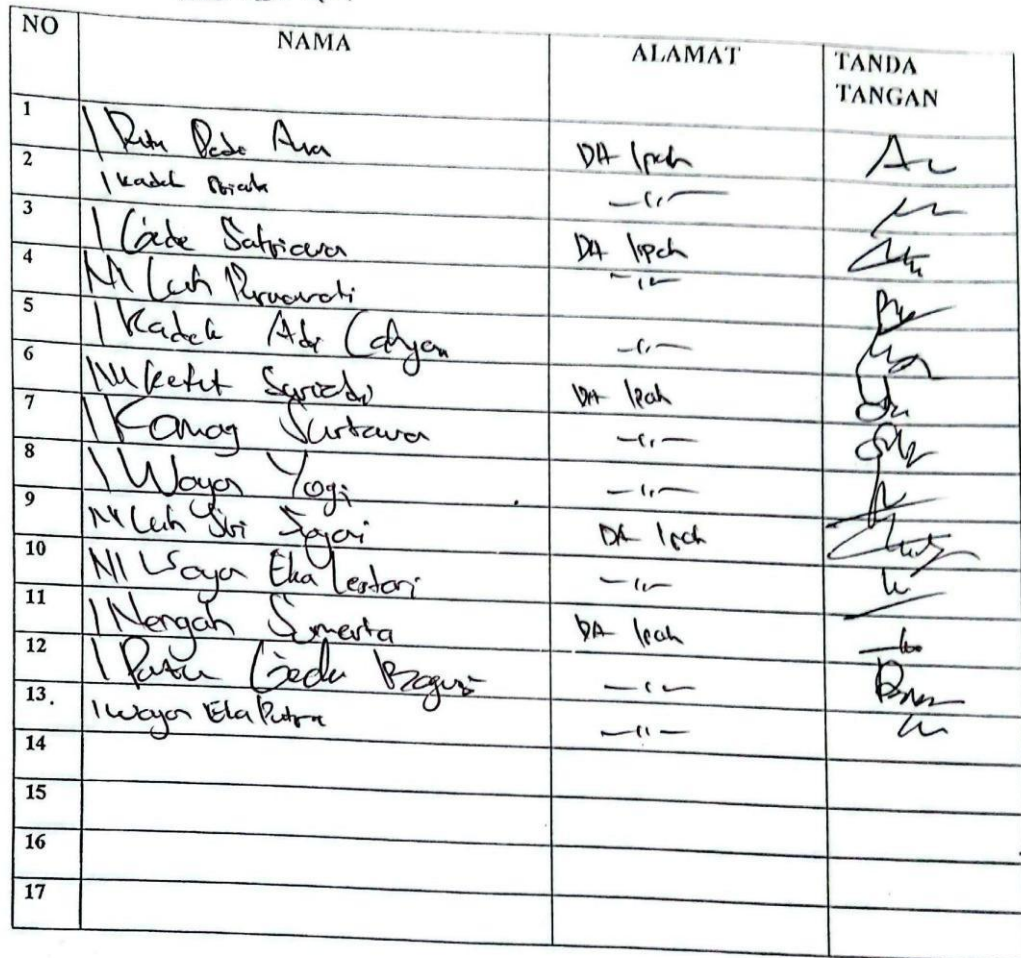 NO NAMA ALAMAT TANDA TANGAN
1 I Putu Ana DA Ipah
2 I Kadek —〃—
3 I Gede Satriawan DA Ipah
4 NI Luh Purnawati —〃—
5 I Kadek Adi Cahyan —〃—
6 NI Ketut DA Ipah
7 I Komang Surtawan —〃—
8 I Wayan Yogi —〃—
9 NI Luh Sri Sayari DA Ipah
10 NI Wayan Eka Lestari —〃—
11 I Nengah Sumerta DA Ipah
12 I Putu Gede Bagus —〃—
13. I Wayan Eka Putra —〃—
14
15
16
17